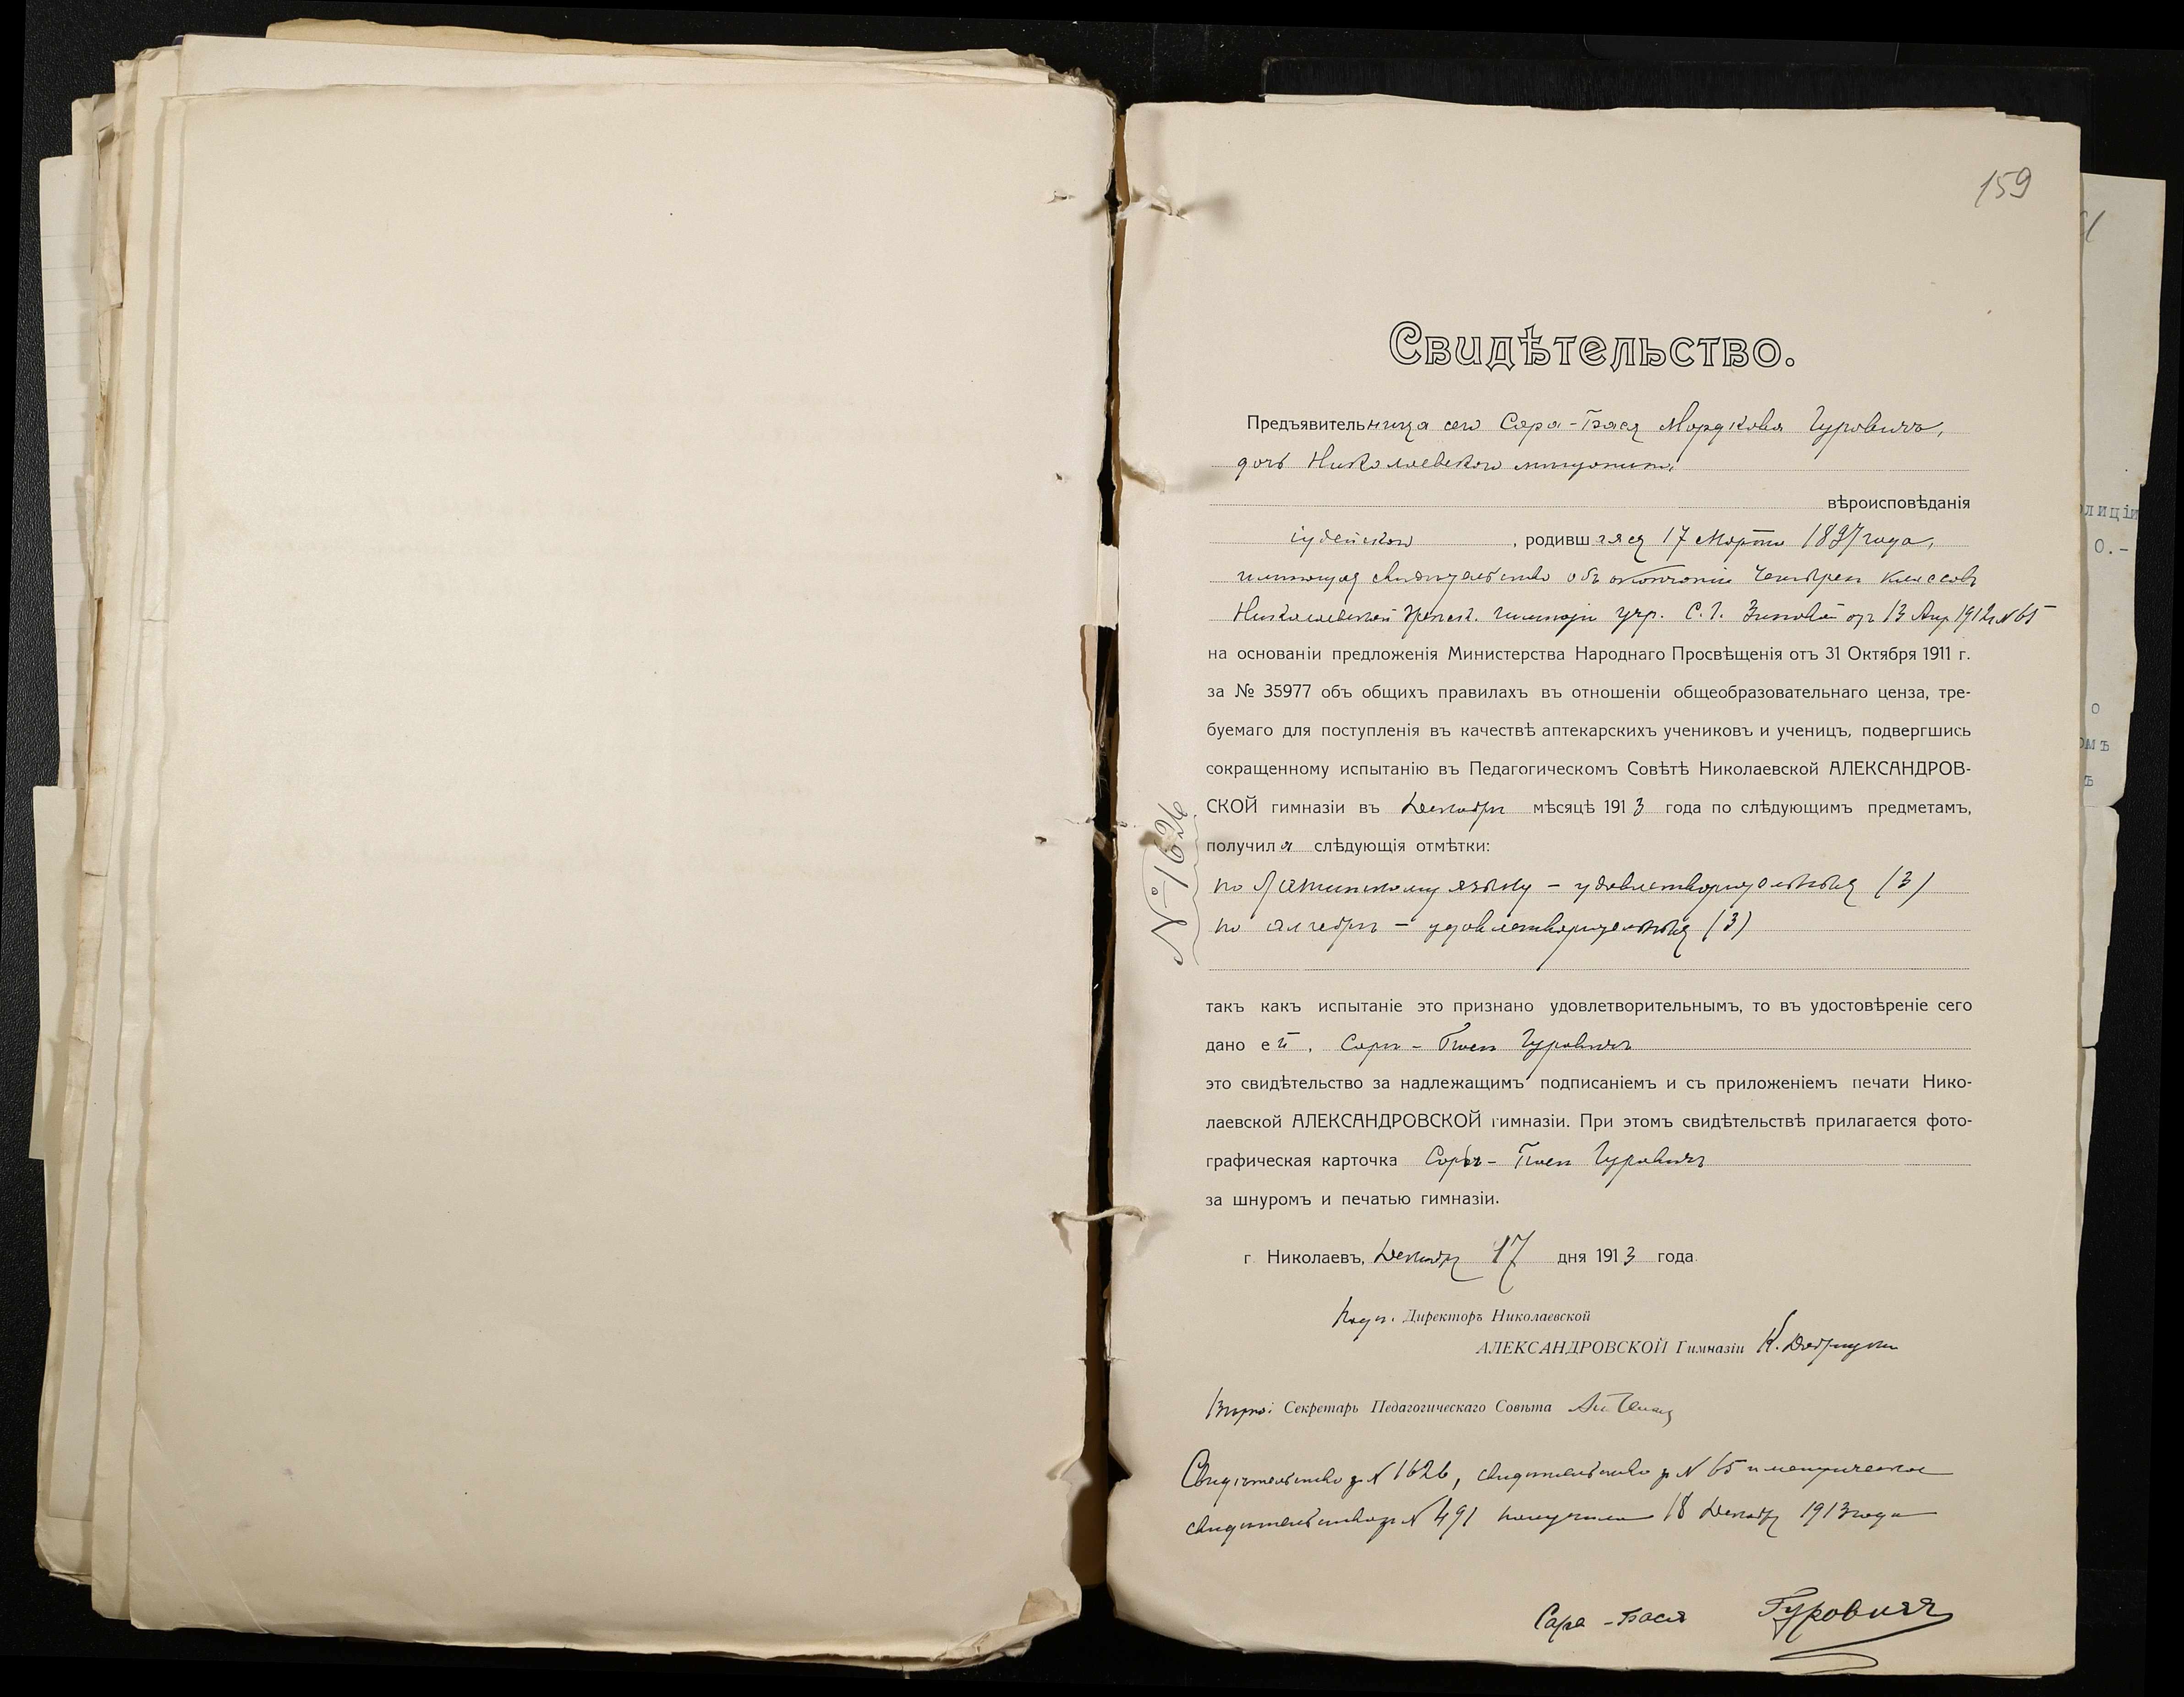 159
Свидѣтельство.
Предъявительница сего Сара-Бася Мордкова Гуровичъ,
дочь Николаевскаго мѣщанина,
вѣроисповѣданія
іудейскаго, родившаяся 17 Марта 1897 года,
имѣющая свидѣтельство объ окончаніи четырехъ классовъ
Николаевской женск. гимназіи учр. С. І. отъ 13 Апр 1912 г. № 65
на основаніи предложенія Министерства Народнаго Просвѣщенія отъ 31 Октября 1911 г.
за № 35977 объ общихъ правилахъ въ отношеніи общеобразовательнаго ценза, тре-
буемаго для поступленія въ качествѣ аптекарскихъ учениковъ и ученицъ, подвергшись
сокращенному испытанію въ Педагогическомъ Совѣтѣ Николаевской АЛЕКСАНДРОВ-
СКОЙ гимназіи въ Декабрѣ мѣсяцѣ 1913 года по слѣдующимъ предметамъ,
получила слѣдующія отмѣтки:
по Латинскому языку – удовлетворительныя (3)
по алгебрѣ – удовлетворительныя (3)
№ 1626
такъ какъ испытаніе это признано удовлетворительнымъ, то въ удостовѣреніе сего
дано ей, Сарѣ-Басѣ Гуровичъ
это свидѣтельство за надлежащимъ подписаніемъ и съ приложеніемъ печати Нико-
лаевской АЛЕКСАНДРОВСКОЙ гимназіи. При этомъ свидѣтельствѣ прилагается фото-
графическая карточка Сары-Баси Гуровичъ
за шнуромъ и печатью гимназіи.
г. Николаевъ, Декабря 17 дня 1913 года.
Подп. Директоръ Николаевской
АЛЕКСАНДРОВСКОЙ Гимназіи К.
Вѣрно: Секретарь Педагогическаго Совѣта
Свидѣтельство за № 1626, свидѣтельство за № 65 и метрическое
свидѣтельство за № 491 получила 18 Декабря 1913 года
Сара-Бася Гуровичъ
лиціи
0.-
о
омъ
ъ